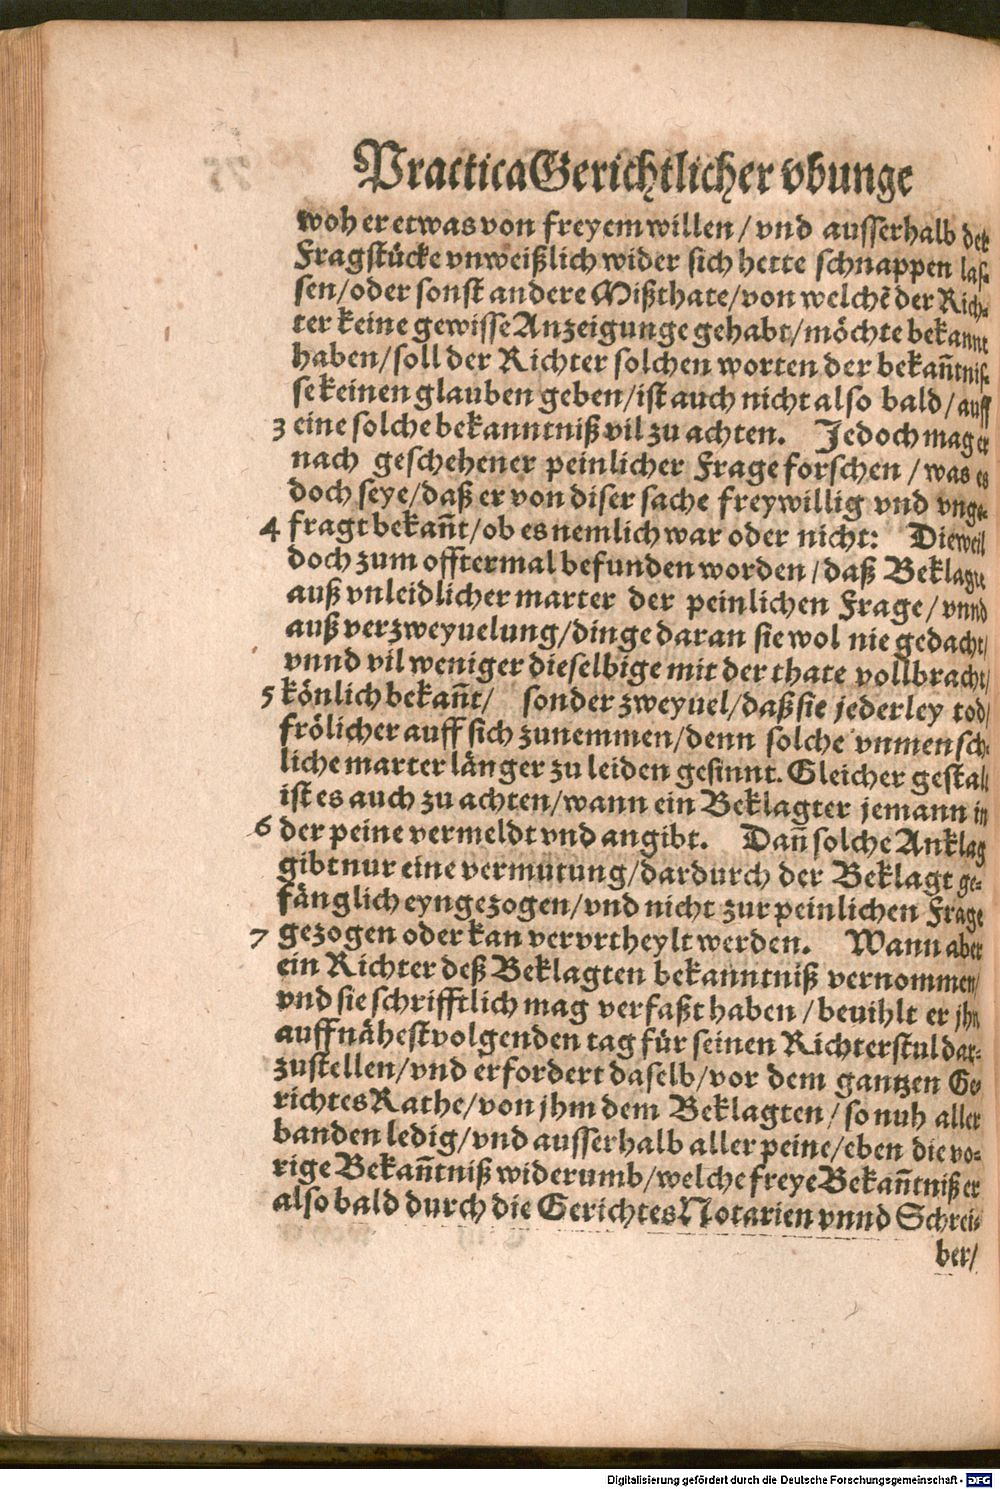 Practica Gerichtlicher vbunge
woh er etwas von freyem willen / vnd ausserhalb der
Fragstücke vnweißlich wider sich hette schnappen las-
sen/oder sonst andere Mißthate/von welchẽ der Rich-
ter keine gewisse Anzeigunge gehabt/möchte bekannt
haben/soll der Richter solchen worten der bekañtnis-
se keinen glauben geben/ist auch nicht also bald/auff
3 eine solche bekanntniß vil zu achten. Jedoch mag er
nach geschehener peinlicher Frage forschen / was es
doch seye/daß er von diser sache freywillig vnd vnge-
4 fragt bekañt/ob es nemlich war oder nicht: Dieweil
doch zum offtermal befunden worden/daß Beklagte
auß vnleidlicher marter der peinlichen Frage/vnnd
auß verzweyuelung/dinge daran sie wol nie gedacht/
vnnd vil weniger dieselbige mit der thate vollbracht/
5 könlich bekañt/ sonder zweyuel/daß sie jederley tod/
frölicher auff sich zunemmen/denn solche vnmensch-
liche marter länger zu leiden gesinnt. Gleicher gestalt
ist es auch zu achten/wann ein Beklagter jemann in
6 der peine vermeldt vnd angibt. Dañ solche Anklag
gibt nur eine vermutung/dardurch der Beklagt ge-
fänglich eyngezogen/vnd nicht zur peinlichen Frage
7 gezogen oder kan vervrtheylt werden. Wann aber
ein Richter deß Beklagten bekanntniß vernommen/
vnd sie schrifftlich mag verfaßt haben / beuihlt er jhn
auff nähestvolgenden tag für seinen Richterstul dar-
zustellen/vnd erfordert daselb/vor dem gantzen Ge-
richtes Rathe/von jhm dem Beklagten / so nuh aller
banden ledig/vnd ausserhalb aller peine/eben die vo-
rige Bekañtniß widerumb/welche freye Bekañtniß er
also bald durch die Gerichtes Notarien vnnd Schrei-
ber/
Digitalisierung gefördert durch die Deutsche Forschungsgemeinschaft - DFG